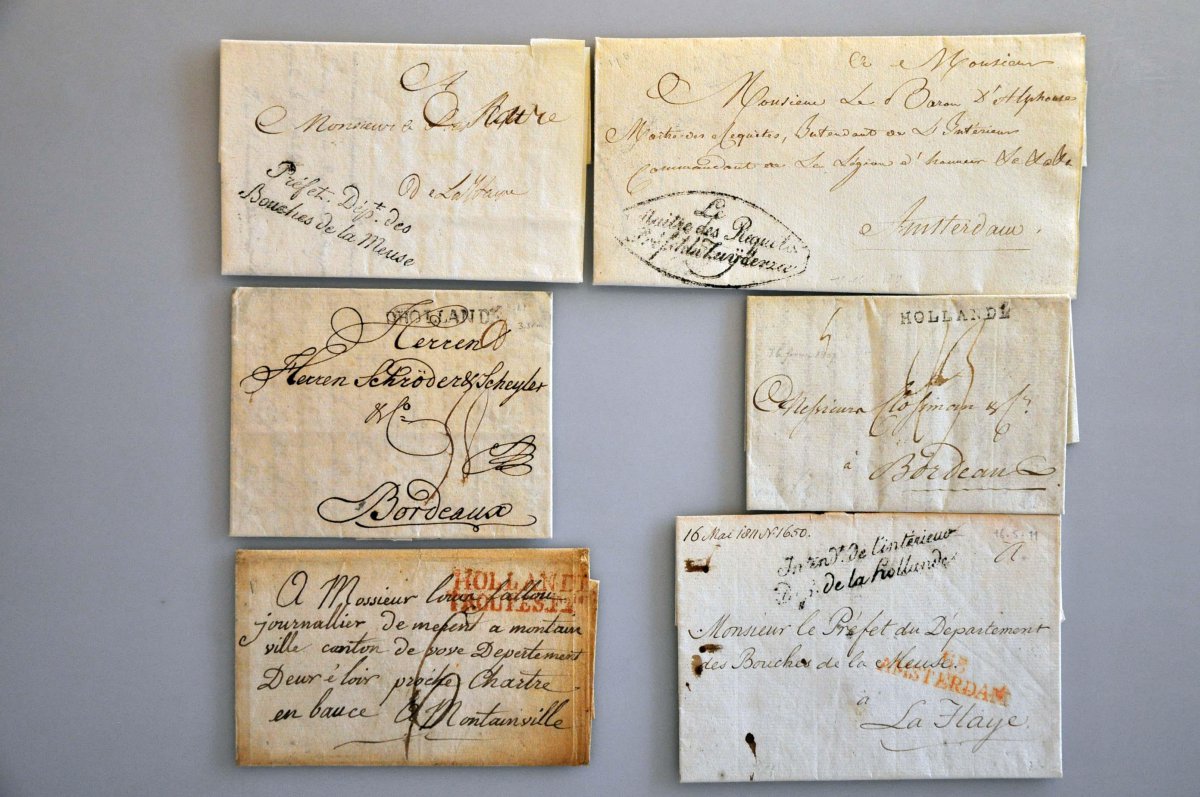 A
Monsieur
Maire
De La Haye
Préfet. Dépt. des
Bouches de la Meuse
Monsieur
Monsieur Le Baron D'Alphonse
Maitre des Requêtes, Intendant de L'Intérieur
Commandant de La Légion d'honneur &c &c &c
Amsterdam.
Le
Maitre des Requêtes
Préfet du Zuyderzee
HOLLANDE
Herren
Herren Schröder & Scheyler
& Co
Bordeaux
HOLLANDE
Messieurs
à
Bordeaux
HOLLANDE
TROUPES. FR
A Mossieur louis
journallier de mesent a montain
ville canton de vove Departement
Deur é loir proche Chartre
en bauce A Montainville
16 Mai 1811 N 1650.
16.5.11
Intendt. de l'intérieur
Dép. de la Hollande
Monsieur le Préfet du Departement
des Bouches de la Meuse.
AMSTERDAM
à
La Haye.